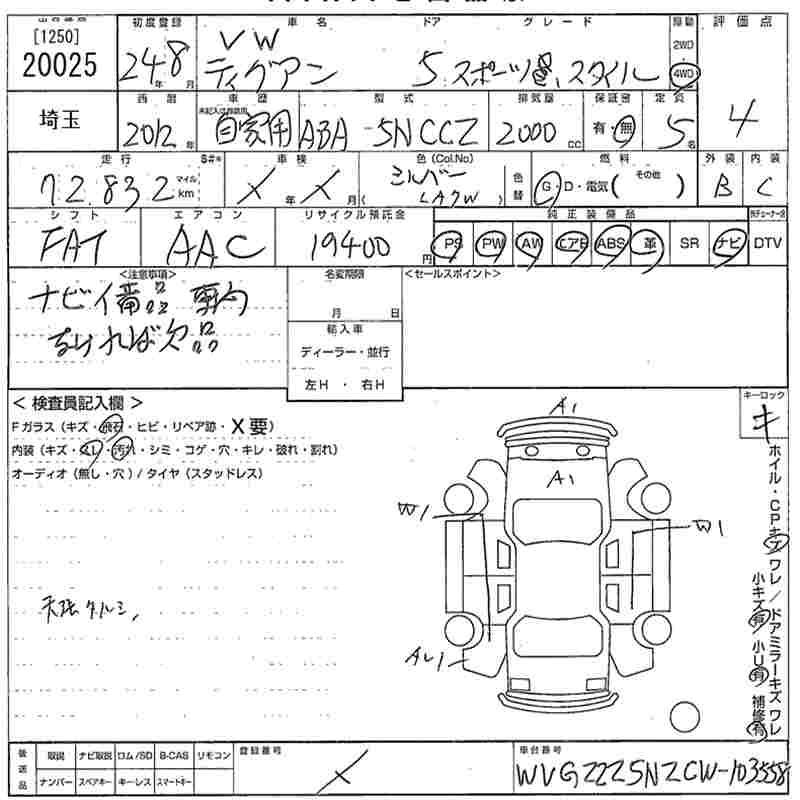 [1250]
20025
初度登録
24年8月
車名
VW
ティグアン
ドア グレード
5 スポーツ&スタイル
駆動
2WD
4WD
評価点
4
埼玉
西暦
2012年
車歴
自家用
型式
ABA-5NCCZ
排気量
2000cc
保証書
有・無
定員
5名
走行
72.832
マイル
km
S#*
車検
X年X月
色(Col.No)
シルバー
(LA7W)
色替
燃料
G・D・電気( その他 )
外装
B
内装
C
シフト
FAT
エアコン
AAC
リサイクル預託金
19400円
純正装備品
PS PW AW エアB ABS 革 SR ナビ DTV
<注意事項>
ナビイ備品 車内
なければ欠品
名変期限
月 日
輸入車
ディーラー・並行
左H・右H
<セールスポイント>
<検査員記入欄>
Fガラス(キズ・飛石・ヒビ・リペア跡・X要)
内装(キズ・スレ・汚れ・シミ・コゲ・穴・キレ・破れ・割れ)
オーディオ(無し・穴)/タイヤ(スタッドレス)
天張タルミ,
A1
A1
W1
W1
AU1
キーロック
キ
ホイル・CPキズワレ/ドアミラーキズワレ
小キズ有 小U有 補修有
後送品
取説 ナビ取説 ロム/SD B-CAS リモコン
ナンバー スペアキー キーレス スマートキー
登録番号
X
車台番号
WVGZZZ5NZCW-103558